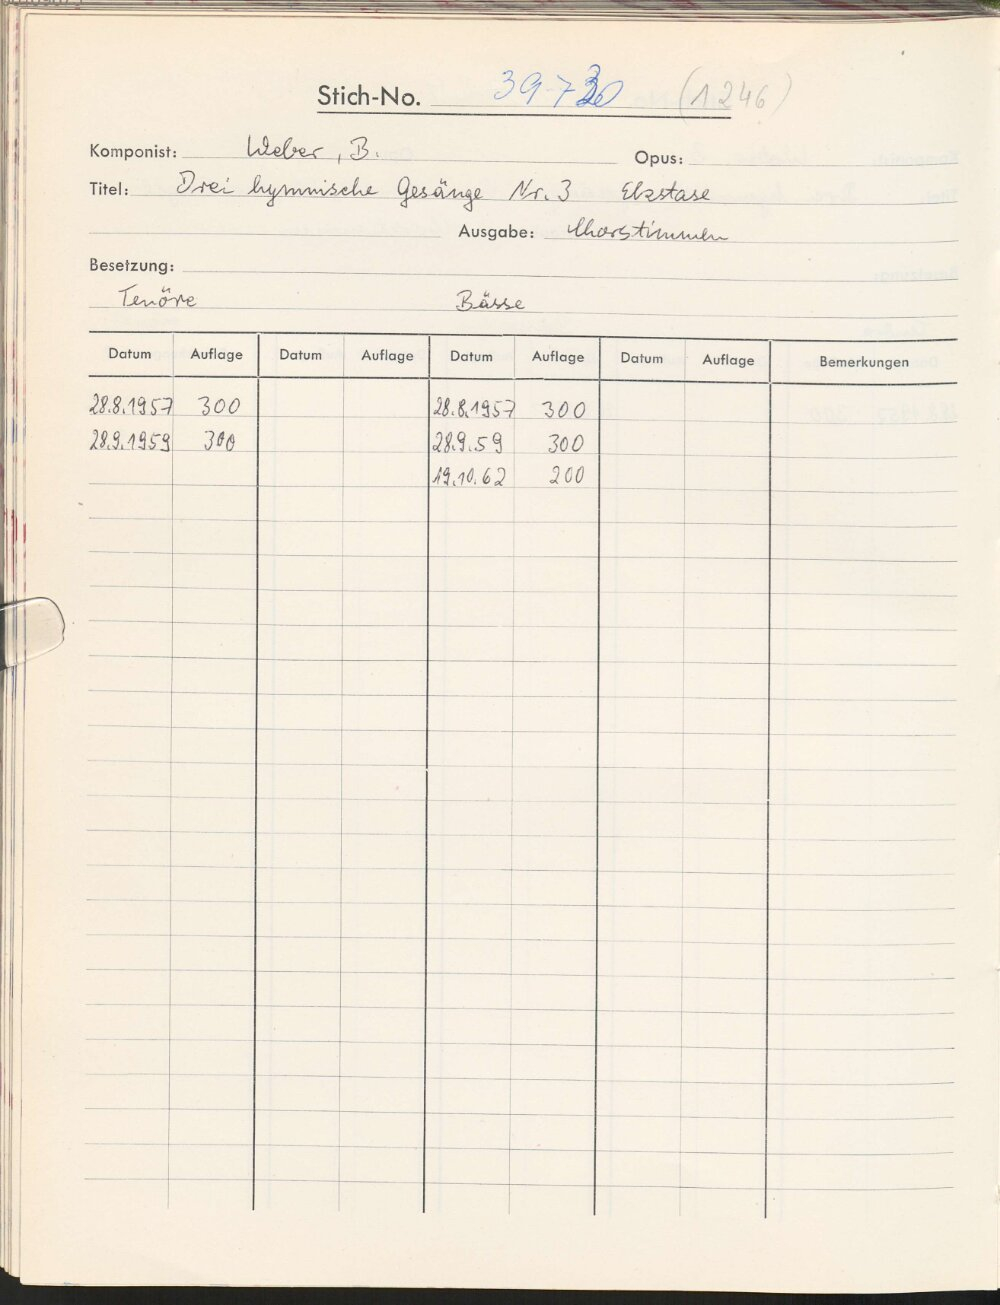 Stich-No. 39730 (1246)
Komponist: Weber, B. Opus:
Titel: Drei hymnische Gesänge Nr. 3 Ekstase
Ausgabe: Chorstimmen
Besetzung:
Tenöre Bässe
Datum Auflage Datum Auflage Datum Auflage Datum Auflage Bemerkungen
28.8.1957 300 28.8.1957 300
28.9.1959 300 28.9.59 300
19.10.62 200